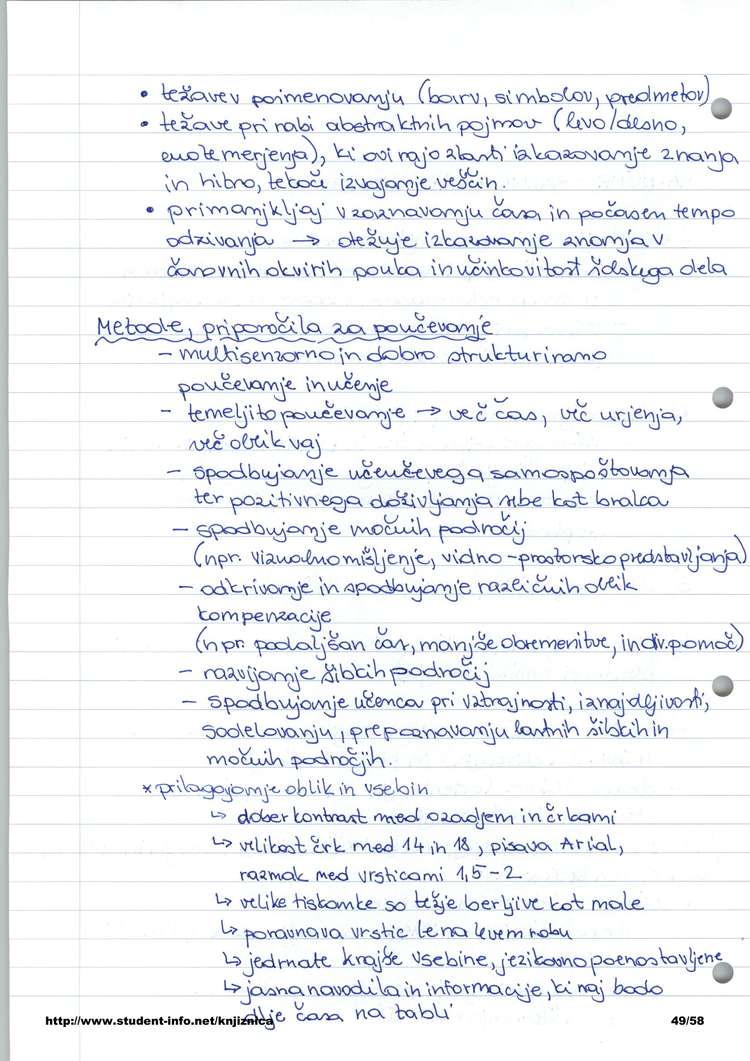 • težave v poimenovanju (barv, simbolov, predmetov)
• težave pri rabi abstraktnih pojmov (levo/desno,
enote merjenja), ki ovirajo zlasti izkazovanje znanja
in hitro, tekoči izvajanje veščin.
• primanjkljaj v zaznavanju časa in počasen tempo
odzivanja → otežuje izkazovanje znanja v
časovnih okvirih pouka in učinkovitost šolskega dela
Metode, priporočila za poučevanje
- multisenzorno in dobro strukturirano
poučevanje in učenje
- temeljito poučevanje → več čas, več urjenja,
več oblik vaj
- spodbujanje učenčevega samospoštovanja
ter pozitivnega doživljanja sebe kot bralca
- spodbujanje močnih področij
(npr. vizualno mišljenje, vidno-prostorsko predstavljanja)
- odkrivanje in spodbujanje različnih oblik
kompenzacije
(npr. podaljšan čas, manjše obremenitve, indiv. pomoč)
- razvijanje šibkih področij
- spodbujanje učenca pri vztrajnosti, iznajdljivosti,
sodelovanju, prepoznavanju lastnih šibkih in
močnih področjih.
* prilagajanje oblik in vsebin
↳ dober kontrast med ozadjem in črkami
↳ velikost črk med 14 in 18, pisava Arial,
razmak med vrsticami 1,5-2
↳ velike tiskanke so težje berljive kot male
↳ poravnava vrstic le na levem robu
↳ jedrnate krajše vsebine, jezikovno poenostavljene
↳ jasna navodila in informacije, ki naj bodo
dlje časa na tabli
http://www.student-info.net/knjiznica
49/58